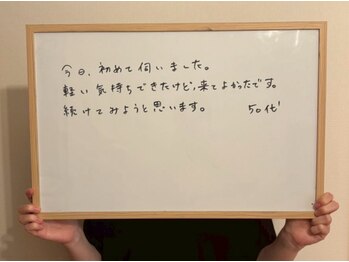 今日、初めて伺いました。
軽い気持ちできたけど、来てよかったです。
続けてみようと思います。 50代